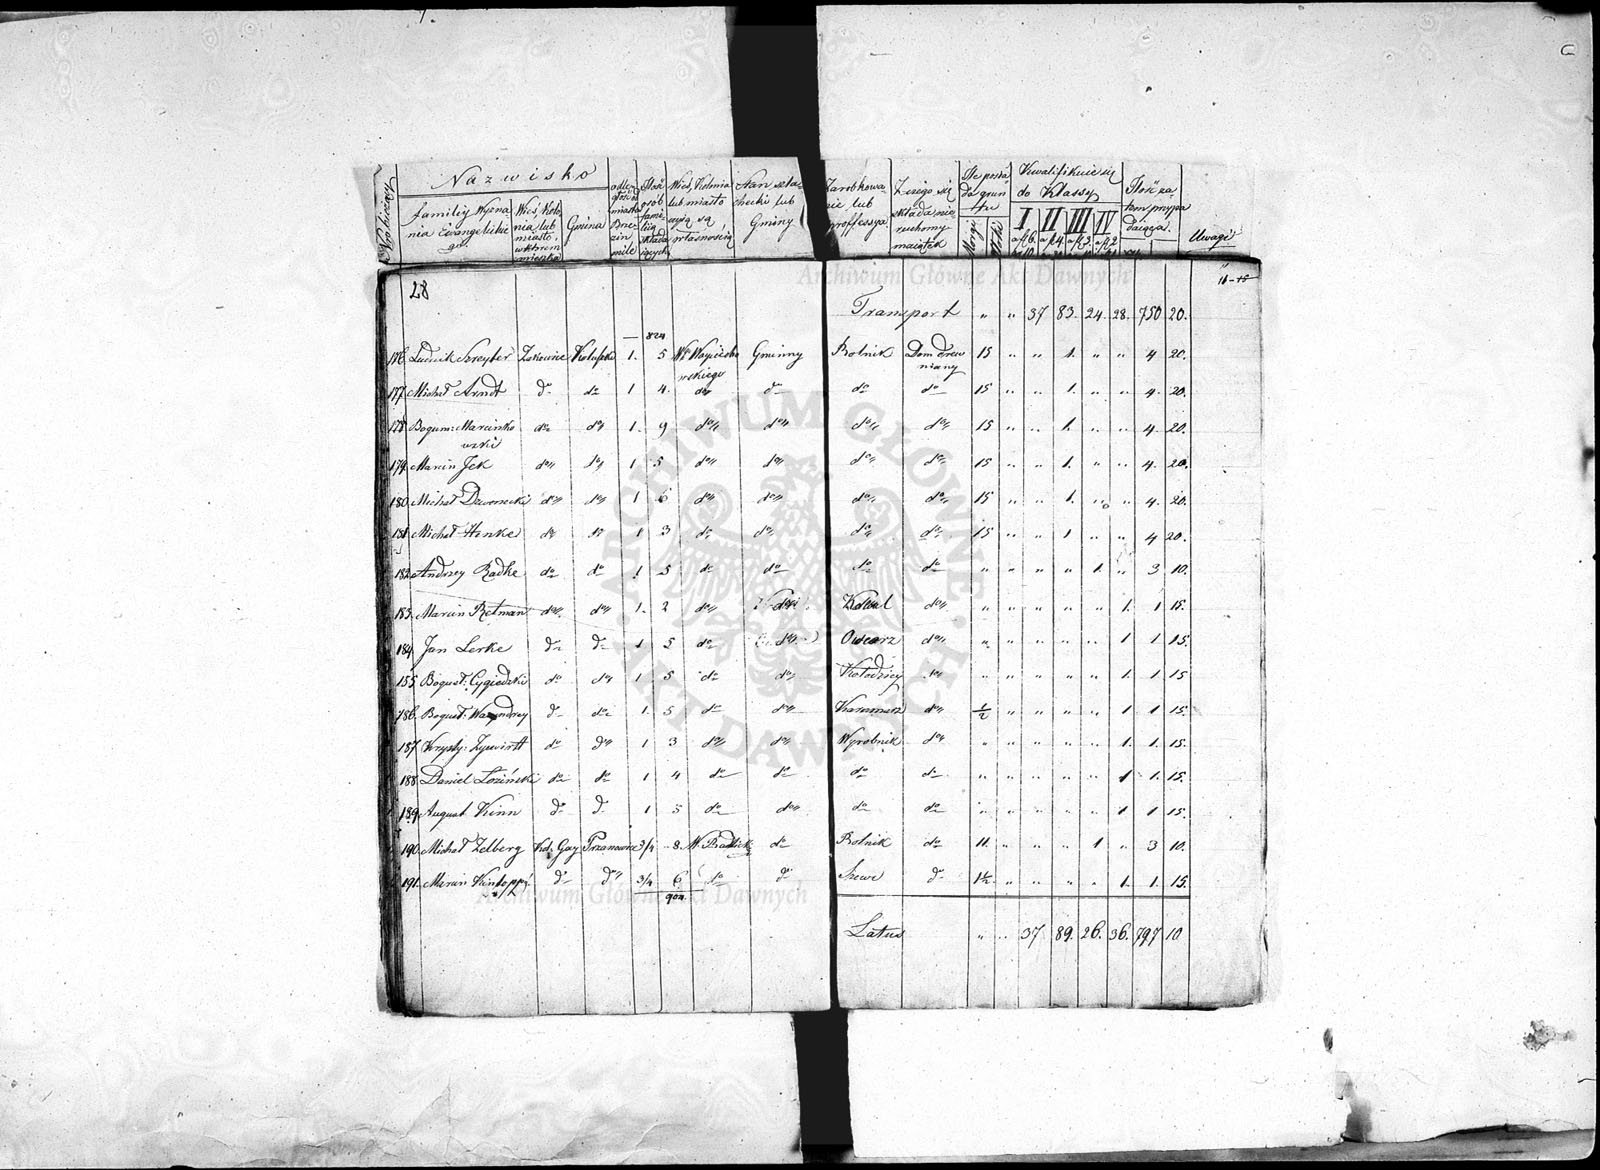 Nazwisko
familiy Wyzna
nia Ewangelickie
go
Wieś, Kolo
nia, lub
miasto,
w którem
mieszka
Gmina
odle
głość od
miasta
Brze
zin
mile
Ilość
osób
fami
lią
składa
jących
Wieś, Kolonia
lub miasto
czyją są
własnością
Stan szla
checki lub
Gminny
Zarobkowa
nie lub
proffessya
Z czego się
składa nie
ruchomy
majątek
Ile posia
da grun
tu
Morgi
Kwalifikuje się
do Klassy
I II III IV
Ilość za
tem przypa
dająca
Uwagi
28
Transport " " 37 83. 24. 28. 750 20.
824
176 Ludwik Szreyber Zakowice Koluszki 1. 5 Gminny Rolnik Dom drew 15 " " 1. " " 4 20.
niany
177 Michał Arndt do do 1 4. do do do do 15 " " 1. " " 4. 20.
178 Bogum: Marcinko do do 1. 9 do do do do 15 " " 1. " " 4. 20.
wski
179. Marcin Jek do do 1 5 do do do do 15 " " 1. " " 4. 20.
180. Michał Dworzecki do do 1 6 do do do do 15 " " 1. " " 4. 20.
181 Michał Henke do do 1 3 do do do do 15 " " 1 " " 4 20.
182. Andrzey Radke do do 1 5 do do do do " " " " 1. " 3 10.
183. Marcin Retman do do 1. 2 do do Kowal do " " " " " 1. 1 15.
184. Jan Lerke do do 1 5 do do Owczarz do " " " " " 1 1 15.
185 Bogusł: Cygiedzki do do 1 5 do do Kołodziey do " " " " " 1. 1 15
186. Bogusł: Wawndrey do do 1. 5 do do Karczmarz do 1/2 " " " " " 1 1 15.
187. Krysty: Zywirtt do do 1 3 do do Wyrobnik do " " " " " 1. 1. 15.
188. Daniel Łoziński do do 1 4 do do do do " " " " " 1 1. 15.
189. August Kinn do do 1 5 do do do do " " " " " 1 1 15.
190. Michał Zelberg Kol: Gay Przanowice 3/4 8. do Rolnik do 11. " " " 1 " 3 10.
191. Marcin Kintopp do do 3/4 6 do do Szewc do 1 1/2 " " " " 1. 1. 15.
904.
Latus " " 37 89. 26. 36. 797 10
Archiwum Główne Akt Dawnych
ARCHIWUM GŁÓWNE AKT DAWNYCH
Archiwum Główne Akt Dawnych